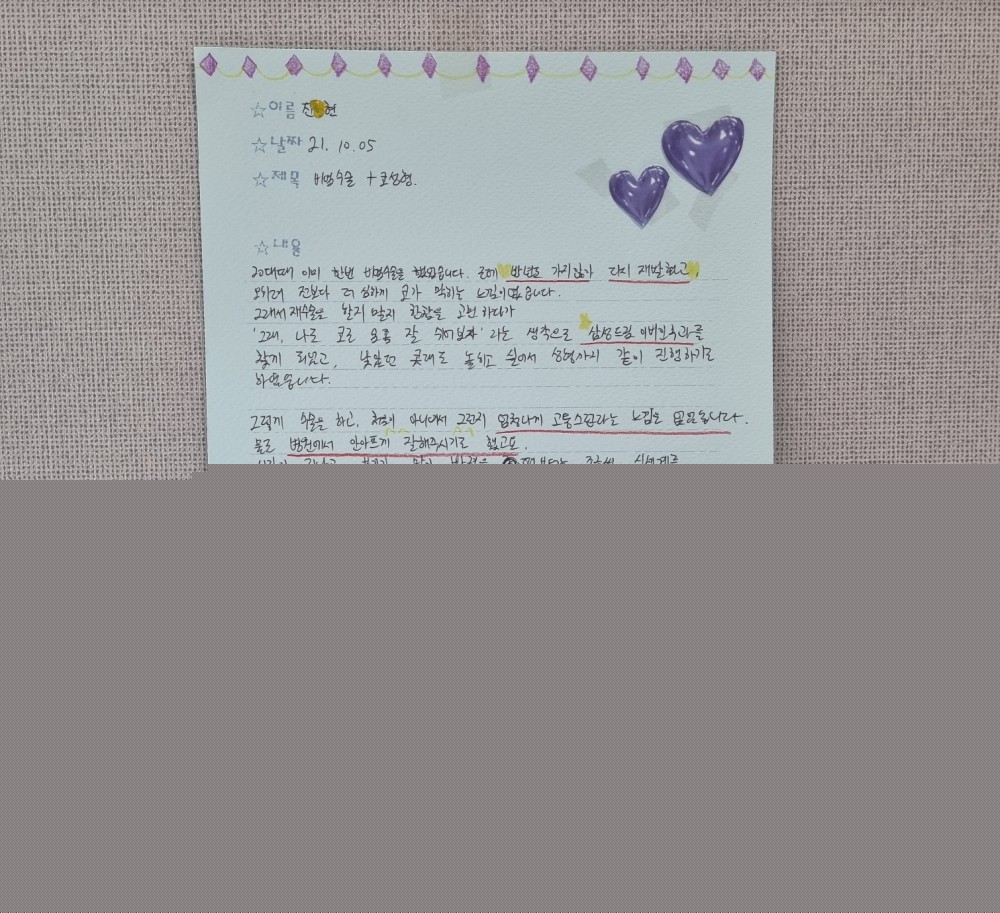 ☆이름 진 현
☆날짜 21. 10. 05
☆제목 비염수술 + 코성형.
☆내용
20대때 이미 한번 비염수술을 했었습니다. 근데 반년도 가지않아 다시 재발했고,
오히려 전보다 더 심하게 코가 막히는 느낌이었습니다.
그래서 재수술을 할지 말지 한참을 고민하다가
'그래, 나도 코로 숨좀 잘 쉬어보자' 라는 생각으로 삼성드림이비인후과를
찾게 되었고, 낮았던 콧대도 높히고 싶어서 성형까지 같이 진행하기로
하였습니다.
그렇게 수술을 하고, 처음이 아니어서 그런지 엄청나게 고통스럽다라는 느낌은 없었습니다.
물론 병원에서 안아프게 잘해주시기도 했고요.